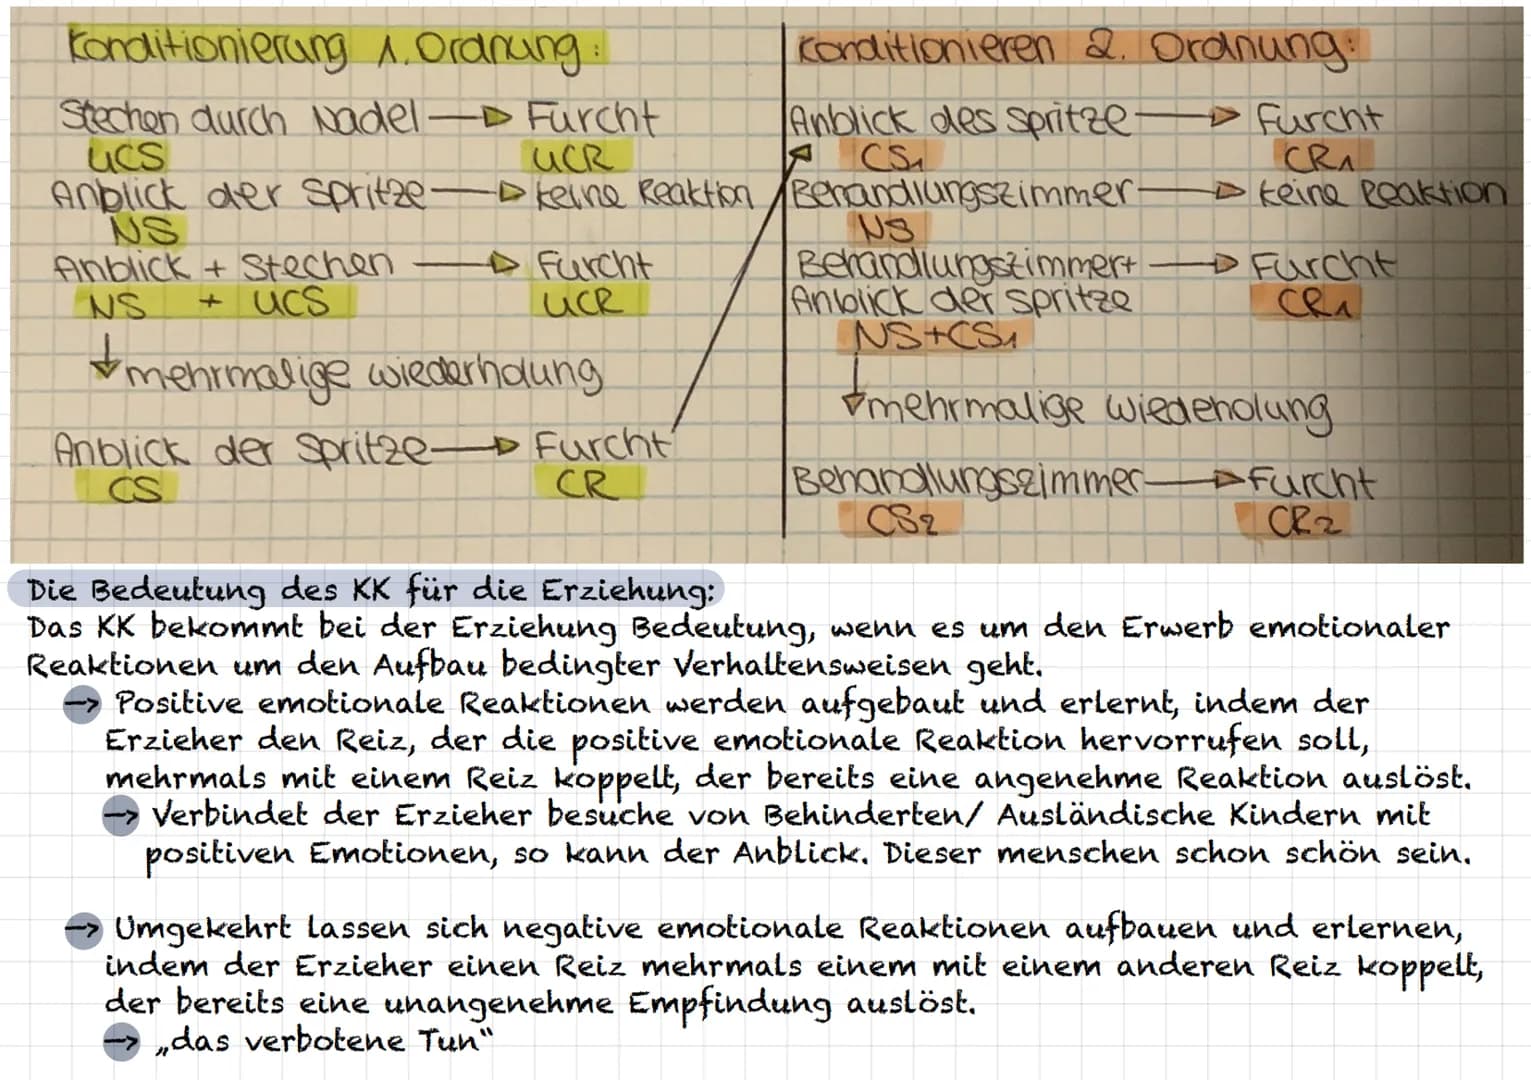 Konditionierung 1. Ordnung:
Stechen durch Nadel → Furcht
UCS UCR
Anblick der Spritze → keine Reaktion
NS
Anblick + Stechen → Furcht
NS + UCS UCR
↓ mehrmalige wiederholung
Anblick der Spritze → Furcht
CS CR
Konditionieren 2. Ordnung:
Anblick des Spritze → Furcht
CS1 CR1
Behandlungszimmer → keine Reaktion
NS
Behandlungszimmer+ → Furcht
Anblick der Spritze CR1
NS+CS1
↓ mehrmalige wiedeholung
Behandlungszimmer → Furcht
CS2 CR2
Die Bedeutung des KK für die Erziehung:
Das KK bekommt bei der Erziehung Bedeutung, wenn es um den Erwerb emotionaler
Reaktionen um den Aufbau bedingter Verhaltensweisen geht.
→ Positive emotionale Reaktionen werden aufgebaut und erlernt, indem der
Erzieher den Reiz, der die positive emotionale Reaktion hervorrufen soll,
mehrmals mit einem Reiz koppelt, der bereits eine angenehme Reaktion auslöst.
→ Verbindet der Erzieher besuche von Behinderten/ Ausländische Kindern mit
positiven Emotionen, so kann der Anblick. Dieser menschen schon schön sein.
→ Umgekehrt lassen sich negative emotionale Reaktionen aufbauen und erlernen,
indem der Erzieher einen Reiz mehrmals einem mit einem anderen Reiz koppelt,
der bereits eine unangenehme Empfindung auslöst.
→ „das verbotene Tun“